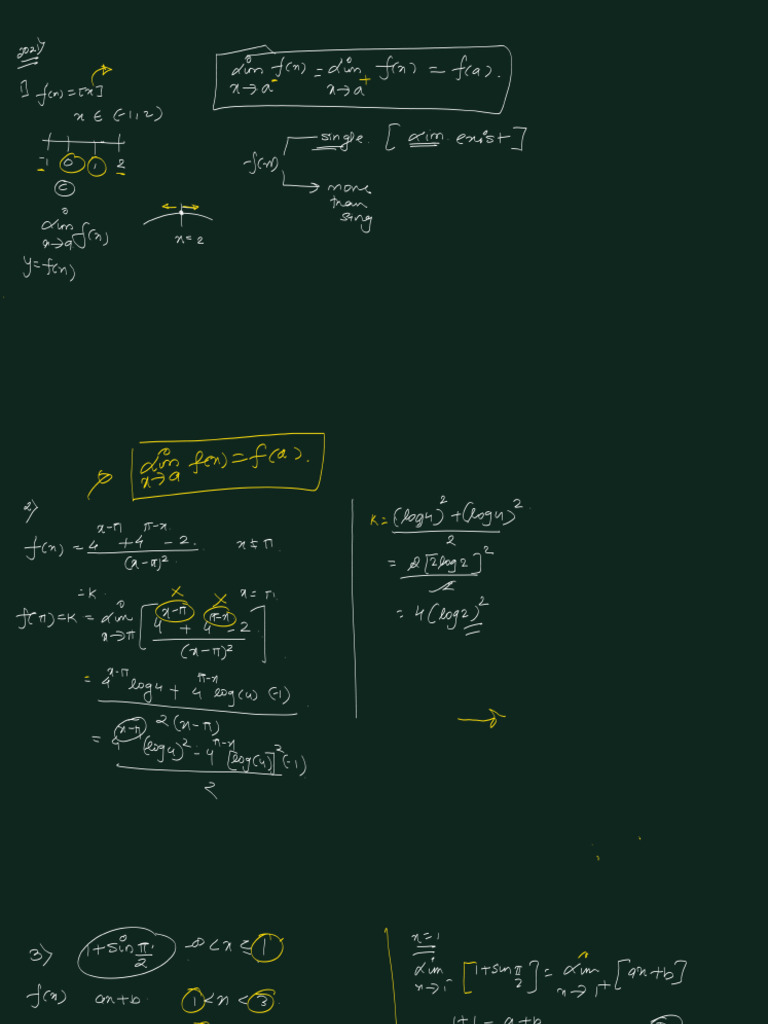 2021)
lim f(x) = lim f(x) = f(a).
x→a⁻ x→a⁺
1] f(x) = [x]
x ∈ (-1, 2)
-1 0 1 2
c
f(x)
single. [lim. exist]
more
than
sing
lim f(x)
x→a
y = f(x)
x = 2
lim f(x) = f(a).
x→a
2)
f(x) = 4^(x-π) + 4^(π-x) - 2 / (x-π)² x ≠ π
= K. x = π
f(π) = K = lim x→π [4^(x-π) + 4^(π-x) - 2 / (x-π)²]
= 4^(x-π) log4 + 4^(π-x) log(4) (-1) / 2(x-π)
= 4^(x-π) (log4)² - 4^(π-x) [log(4)]² (-1) / 2
K = (log4)² + (log4)² / 2
= 2[2log2]² / 2
= 4(log2)²
3) 1 + sin π/2 -∞ < x ≤ 1
f(x) ax+b 1 < x < 3
x = 1
lim x→1⁻ [1 + sin π/2] = lim x→1⁺ [ax+b]
1+1 = a+b